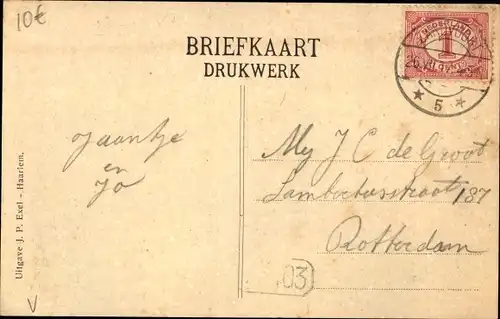 10€
BRIEFKAART
DRUKWERK
NEDERLAND
1
CENT
26.VII
5
Jaantje
en
Jo
Mej J C de Groot
Lambertusstraat 137
Rotterdam
Uitgave J. P. Exel - Haarlem.
03
V